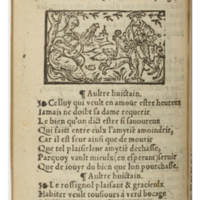 ¶ Aultre huictain.
Celluy qui veult en amour estre heureux
Iamais ne doibt sa dame requerir
Le bien qu'on dict estre si sauoureux
Qui faict entre eulx l'amytié amoindrir,
Car il est seur ainsi que de mourir
Que tel plaisir leur amytié déchasse,
Parquoy vault mieulx en esperant seruir
Que de iouyr du bien que lon pourchasse.
¶ Aultre huictain.
Le rossignol plaisant & gracieulx
Habiter veult tousiours à verd bocage